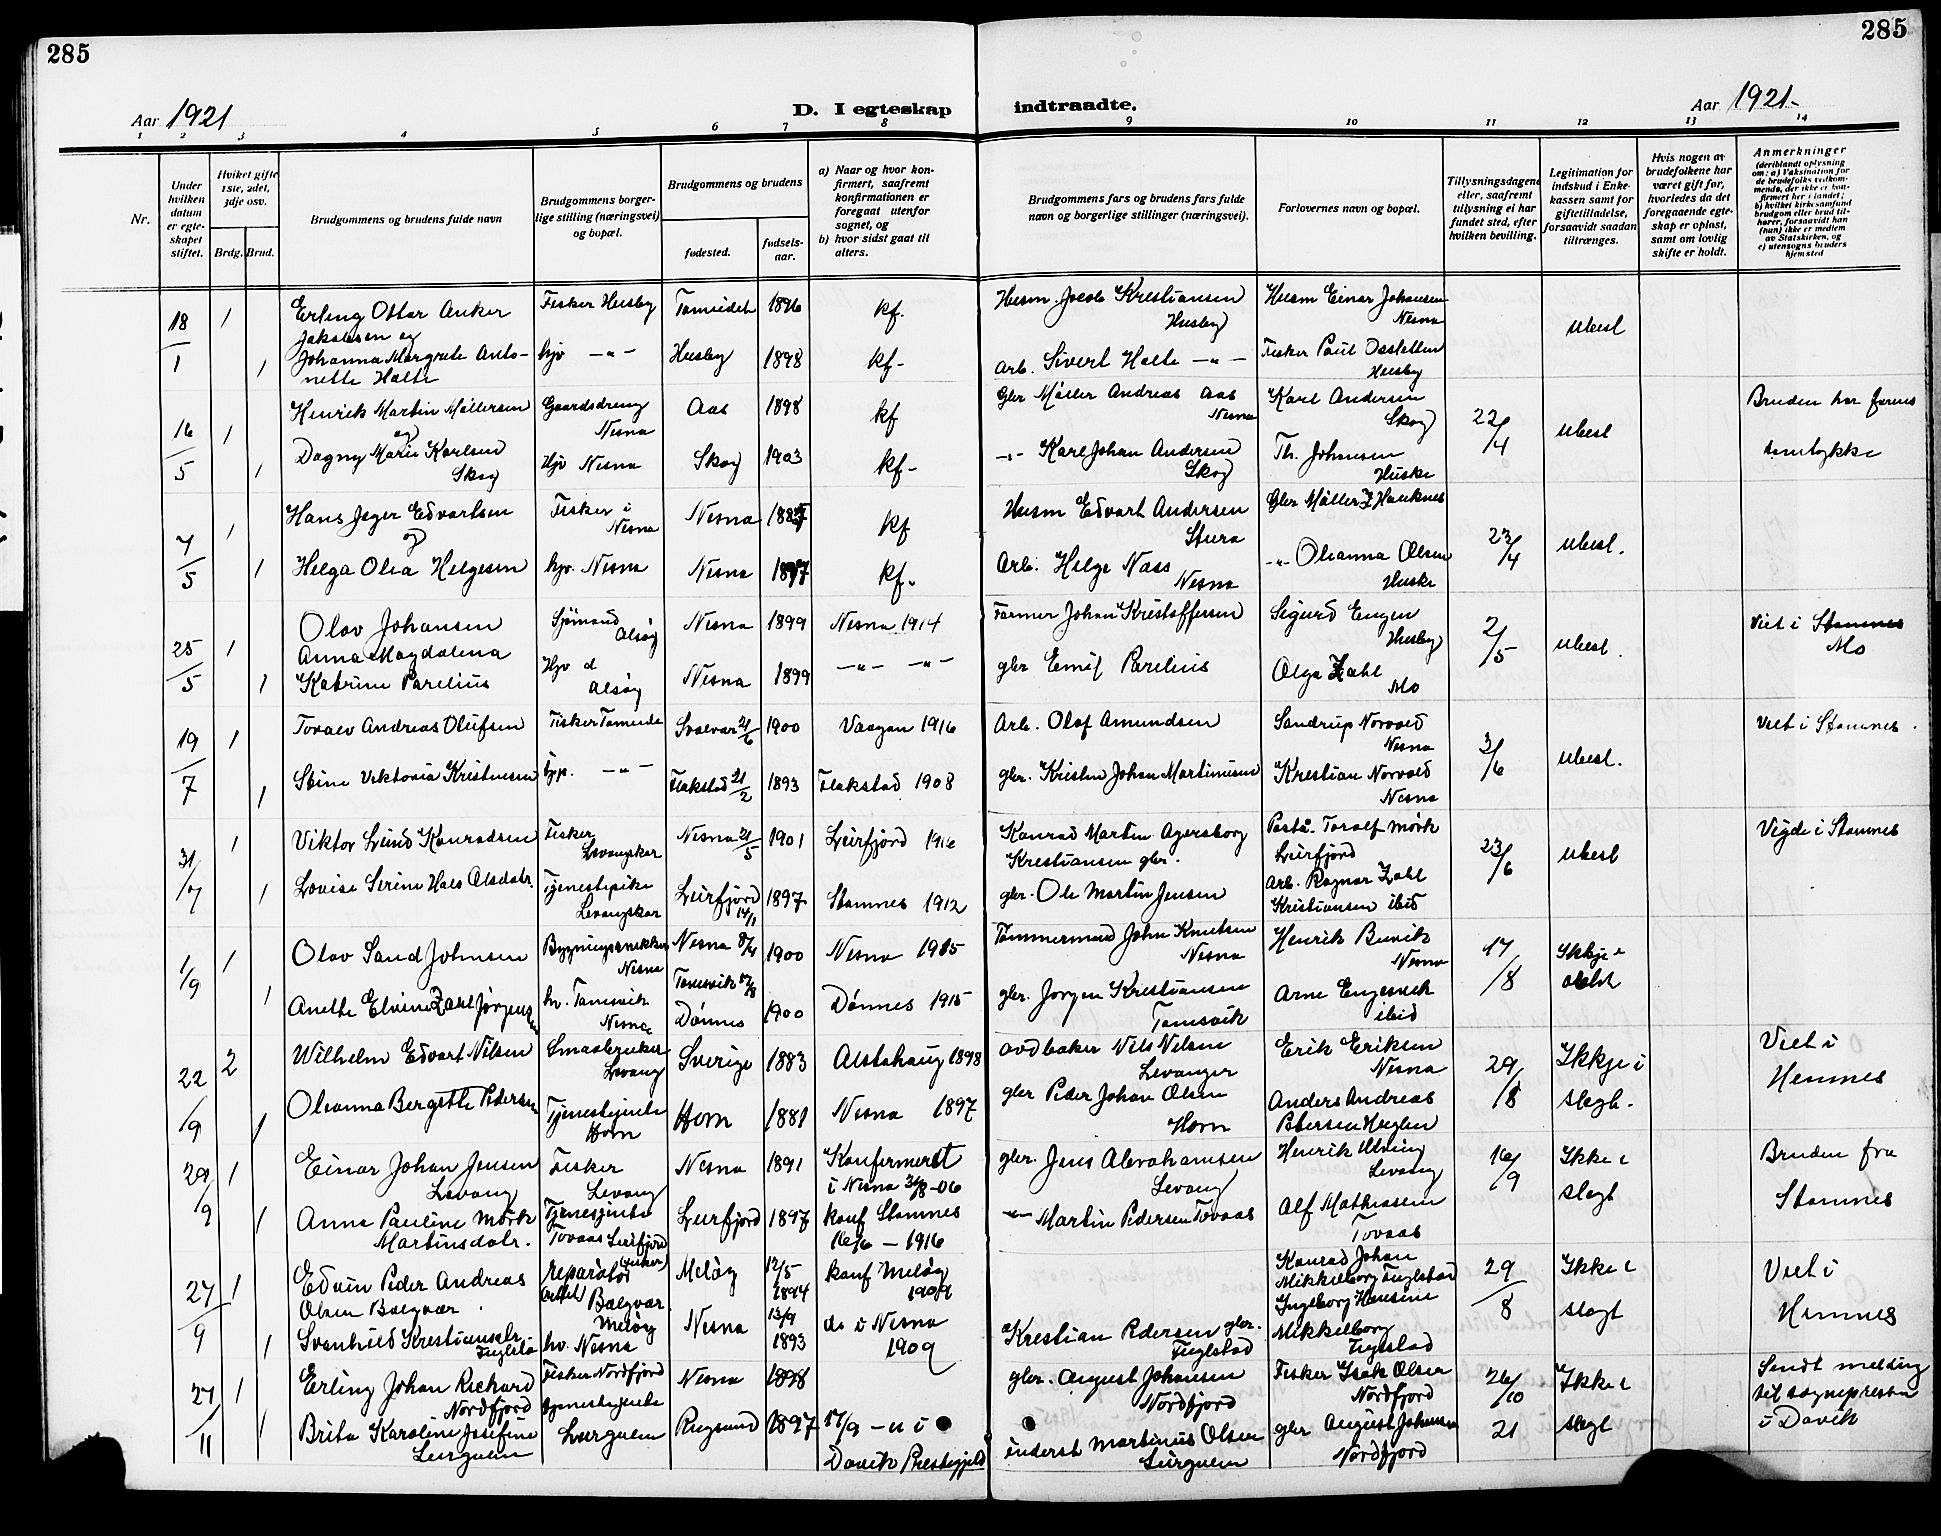 285
285
Aar 1921
D. I egteskap
indtraadte.
Aar 1921-
1 2 3 4 5 6 7 8 9 10 11 12 13 14
Nr.
Under hvilken datum er egteskapet stiftet.
Hvilket gifte 1ste, 2det, 3dje osv.
Brdg. Brud.
Brudgommens og brudens fulde navn
Brudgommens borgerlige stilling (næringsvei) og bopæl.
Brudgommens og brudens
fødested.
fødselsaar.
a) Naar og hvor konfirmert, saafremt konfirmationen er foregaat utenfor sognet, og
b) hvor sidst gaat til alters.
Brudgommens fars og brudens fars fulde navn og borgerlige stillinger (næringsvei).
Forlovernes navn og bopæl.
Tillysningsdagene eller, saafremt tillysning ei har fundet sted, efter hvilken bevilling.
Legitimation for indskud i Enkekassen samt for giftetilladelse, forsaavidt saadan tiltrænges.
Hvis nogen av brudefolkene har været gift før, hvorledes da det foregaaende egteskap er opløst, samt om lovlig skifte er holdt.
Anmerkninger (deriblandt oplysning om: a) Vaksination for de brudefolks vedkommende, der ikke er konfirmert her i landet; b) hvilket kirkesamfund brudgom eller brud tilhører, forsaavidt han (hun) ikke er medlem av Statskirken, og c) utensogns bruders hjemsted
18/1 1 Erling Ottar Anker Jakobsen og Fisker Husby 1896 kf. Husm. Jacob Kristiansen Husby Husm Einar Johansen Nesna ubesl
1 Johanna Margrete Antonette Halte hjv -"- Husby 1898 kf- Arb. Sivert Halte -"- Fisker Paul Husby
16/5 1 Henrik Martin Møllersen og Gaardsdreng Nesna Aas 1898 kf Gbr Møller Andreas Aas Nesna Karl Andersen Skog 22/4 ubesl Bruden har farens samtykke
1 Dagny Marie Karlsen Skog Hjv Nesna Skog 1903 kf- -"- Karl Johan Andersen Skog Th. Johansen Huske
7/5 1 Hans Jeger Edvartsen og Fisker i Nesna Nesna kf Husm Edvart Andersen Gbr Møller Z Hauknes 23/4 ubesl.
1 Helga Olea Helgesen hjv. Nesna Nesna 1897 kf. Arb. Helge Nass Nesna -"- Oleanna Olsen Huske
25/5 1 Olav Johansen Sjømand Alsøy Nesna 1899 Nesna 1914 Farmer Johan Kristoffersen Sigurd Engen Husby 2/5 ubesl. Viet i Stamnes Mo
1 Anna Magdalena Katrine Parelius Hjv d Alsøy Nesna 1899 -"- -"- gbr Emil Parelius Olga Zahl Mo
19/7 1 Andreas Olufsen Fisker Svolvær 21/6 1900 Vaagan 1916 Arb. Olaf Amundsen Sandrup Norvald Nesna 3/6 ubesl. Viet i Stamnes.
1 Stine Viktoria Kristensen -"- Flakstad 21/2 1893 Flakstad 1908 gbr. Kristen Johan Martinusen Krestian Norvald Nesna
31/7 1 Viktor Lund Konradsen Fisker Levangskar Nesna 21/5 1901 Leirfjord 1916 Konrad Martin Agersborg Krestiansen gbr. Toralf Mørk Leirfjord 23/6 ubesl Vigde i Stamnes
1 Lovise Serine Hals Olsdatr. Tjenestepike Levangskar Leirfjord 14/11 1897 Stamnes 1912 gbr. Ole Martin Jensen Arb. Ragnar Zahl Kristiansen ibid
1/9 1 Olav Sand Johnsen Bygningssnikker Nesna Nesna 1900 Nesna 1915 Tømmermand John Knutsen Nesna Henrik Buvik Nesna 17/8 Ikkje i
1 Anette Elvine Zahl Jørgensen hv. Tomsvik Nesna Tomsvik Dønnes 1900 Dønnes 1915 gbr. Jørgen Krestiansen Tomsvik Arne Engesvik ibid
22/9 2 Wilhelm Edvart Nilsen Smaabruker Levang Sverige 1883 Alstahaug 1898 Nils Nilsen Levanger Erik Eriksen Nesna 29/8 Ikkje i slegt. Viet i Hemnes
1 Oleanna Bergitte Pedersen Tjenestejente Horn Horn 1881 Nesna 1897 gbr Peder Johan Olsen Horn Anders Andreas Petersen
29/9 1 Einar Johan Jensen Levang Fisker Levang Nesna 1891 Konfermeret i Nesna -06 gbr. Jens Abrahamsen Levang Henrik Utving Levang 16/9 Ikke i slegt Bruden fra Stamnes
1 Anna Pauline Mørk Martinsdatr. Tjenesjente Tovaas Leirfjord Leirfjord 1897 konf Stamnes 16/6 - 1916 -"- Martin Pedersen Tovaas Alf Mathiasen Tovaas
27/9 1 Edvin Peder Andreas Olsen Bolgvær. reparatør Bolgvær Meløy Meløy 12/5 1894 konf Meløy 1909 Konrad Johan Mikkelborg Fuglstad 29/8 Ikke i slegt Viet i Hemnes
1 Svanhild Krestiansdtr. Fuglstad hv. Nesna Nesna 13/9 1893 do i Nesna 1909 Krestian Pedersen gbr. Fuglstad Ingeborg Hansine Mikkelborg Fuglstad
27/11 1 Erling Johan Richard Nordfjord Fisker Nordfjord Nesna 1898 gbr. August Johansen Nordfjord Fisker Isak Olsen Nordfjord 26/10 21 Ikke i slegt Sendt melding til sognepresten i Davik
1 Brita Karoline Josefine tjenestejente Rugsund 1897 17/9 - 11 i Davik Prestegjeld inderst Martinus Olsen gbr August Johansen Nordfjord